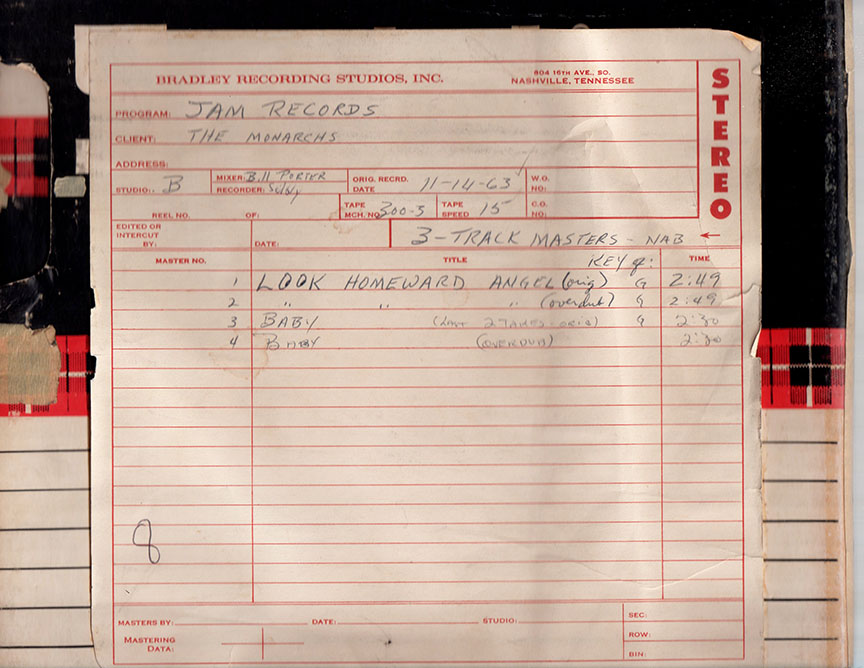 BRADLEY RECORDING STUDIOS, INC.
804 16TH AVE., SO.
NASHVILLE, TENNESSEE
STEREO
PROGRAM: JAM RECORDS
CLIENT: THE MONARCHS
ADDRESS:
STUDIO: B
MIXER: Bill PORTER
RECORDER:
ORIG. RECRD. DATE 11-14-63
W.O. NO:
REEL NO. OF:
TAPE MCH. NO. 300-3
TAPE SPEED 15
C.O. NO:
EDITED OR INTERCUT BY:
DATE:
3-TRACK MASTERS - NAB ←
MASTER NO. TITLE KEY of: TIME
1 LOOK HOMEWARD ANGEL (orig) G 2:49
2 " " " (overdub) G 2:49
3 BABY ( 2 TAKES ORIG) G 2:30
4 BABY (OVERDUB) 2:30
8
MASTERS BY: DATE: STUDIO: SEC:
MASTERING DATA:
ROW:
BIN: